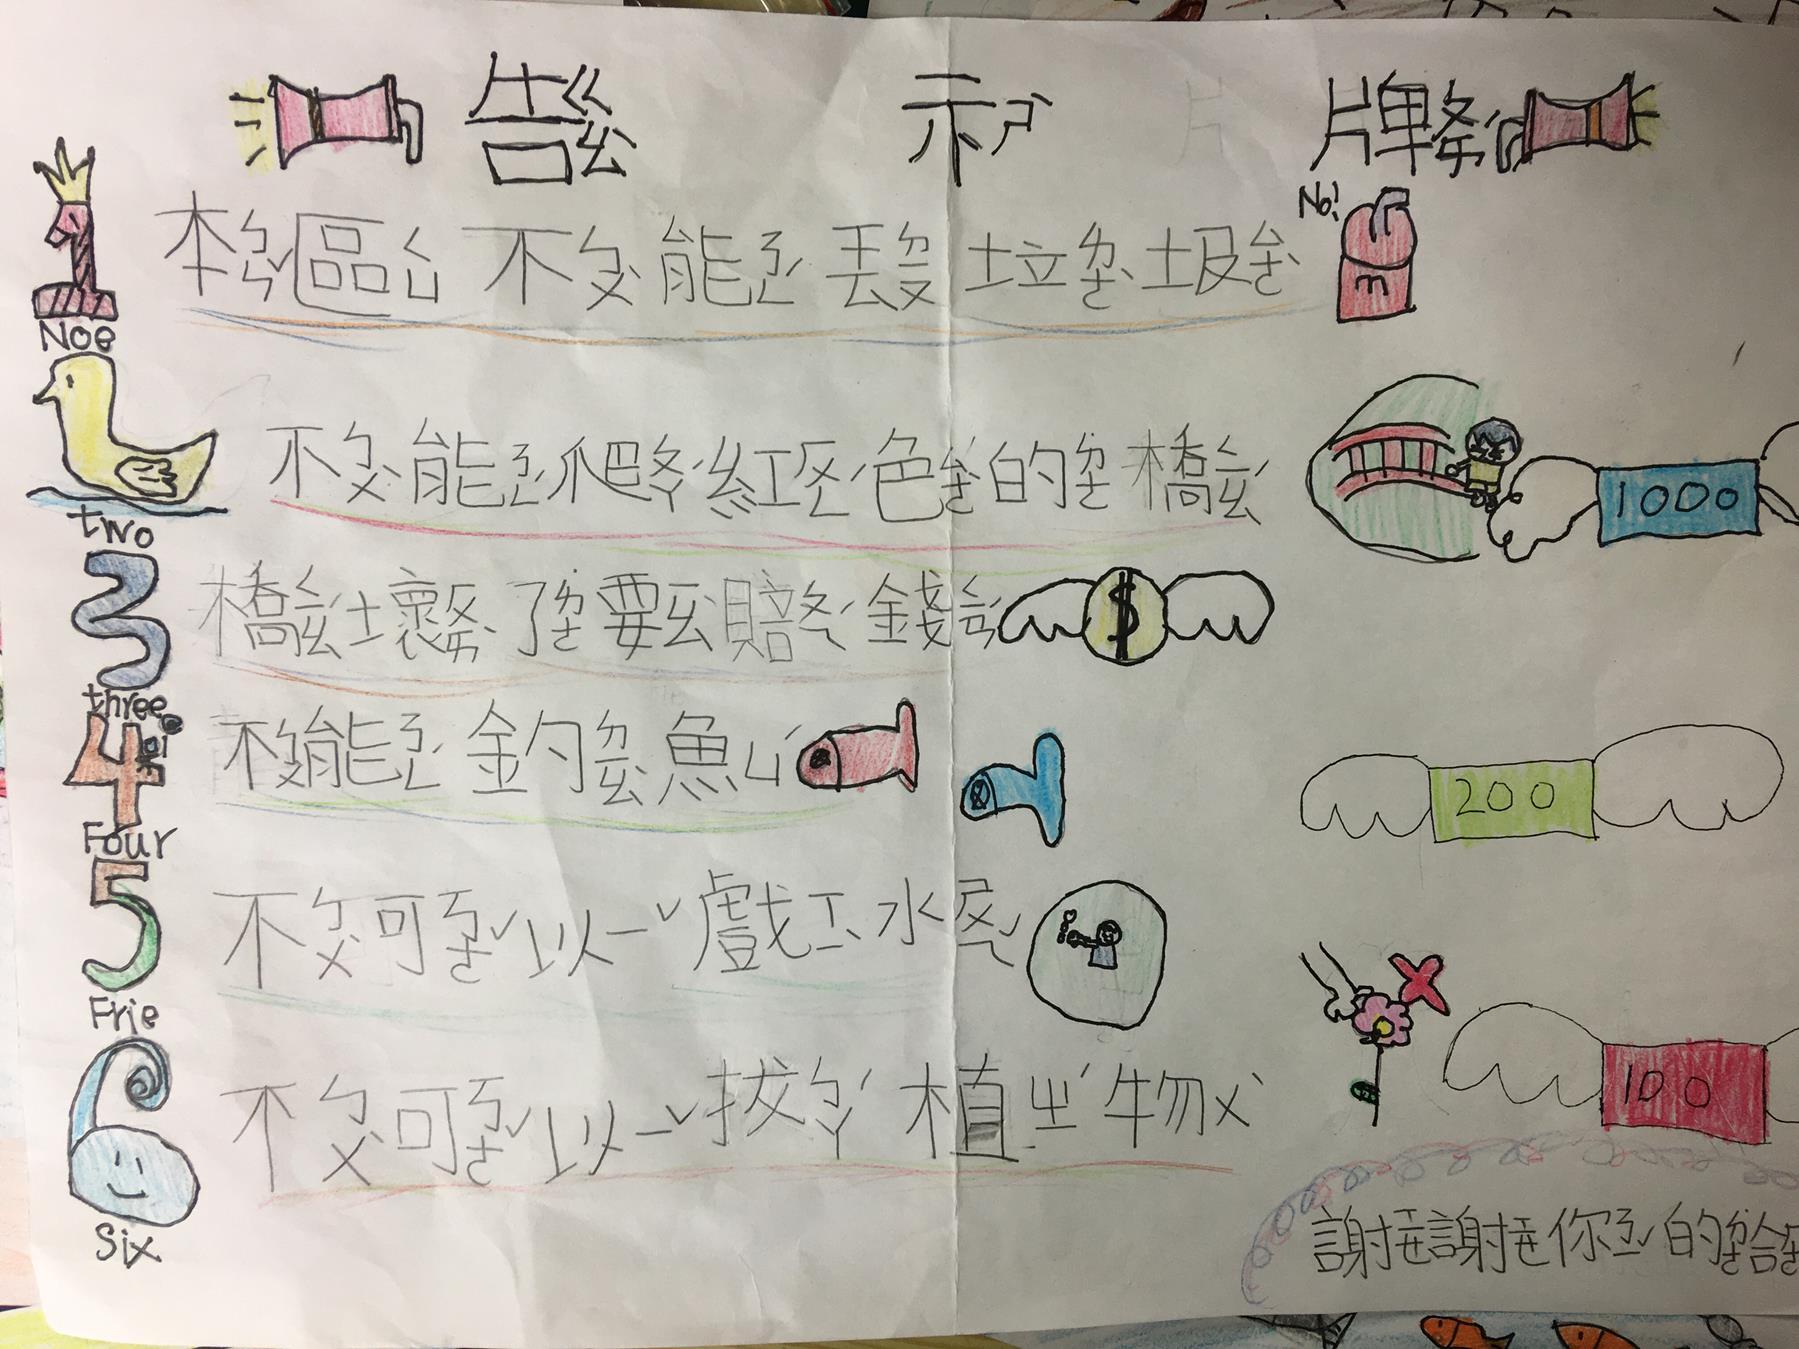 告ㄍㄠˋ 示ㄕˋ 牌ㄆㄞˊ
No!
本ㄅㄣˇ區ㄑㄩ不ㄅㄨˋ能ㄋㄥˊ丟ㄉㄧㄡ垃ㄌㄜˋ圾ㄙㄜˋ
Noe
不ㄅㄨˋ能ㄋㄥˊ爬ㄆㄚˊ紅ㄏㄨㄥˊ色ㄙㄜˋ的ㄉㄜ˙橋ㄑㄧㄠˊ
1000
two
橋ㄑㄧㄠˊ壞ㄏㄨㄞˋ了ㄌㄜ˙要ㄧㄠˋ賠ㄆㄟˊ錢ㄑㄧㄢˊ
$
three
不ㄅㄨˋ能ㄋㄥˊ釣ㄉㄧㄠˋ魚ㄩˊ
200
Four
不ㄅㄨˋ可ㄎㄜˇ以ㄧˇ戲ㄒㄧˋ水ㄕㄨㄟˇ
Frie
不ㄅㄨˋ可ㄎㄜˇ以ㄧˇ拔ㄅㄚˊ植ㄓˊ物ㄨˋ
100
Six
謝ㄒㄧㄝˋ謝ㄒㄧㄝ˙你ㄋㄧˇ的ㄉㄜ˙